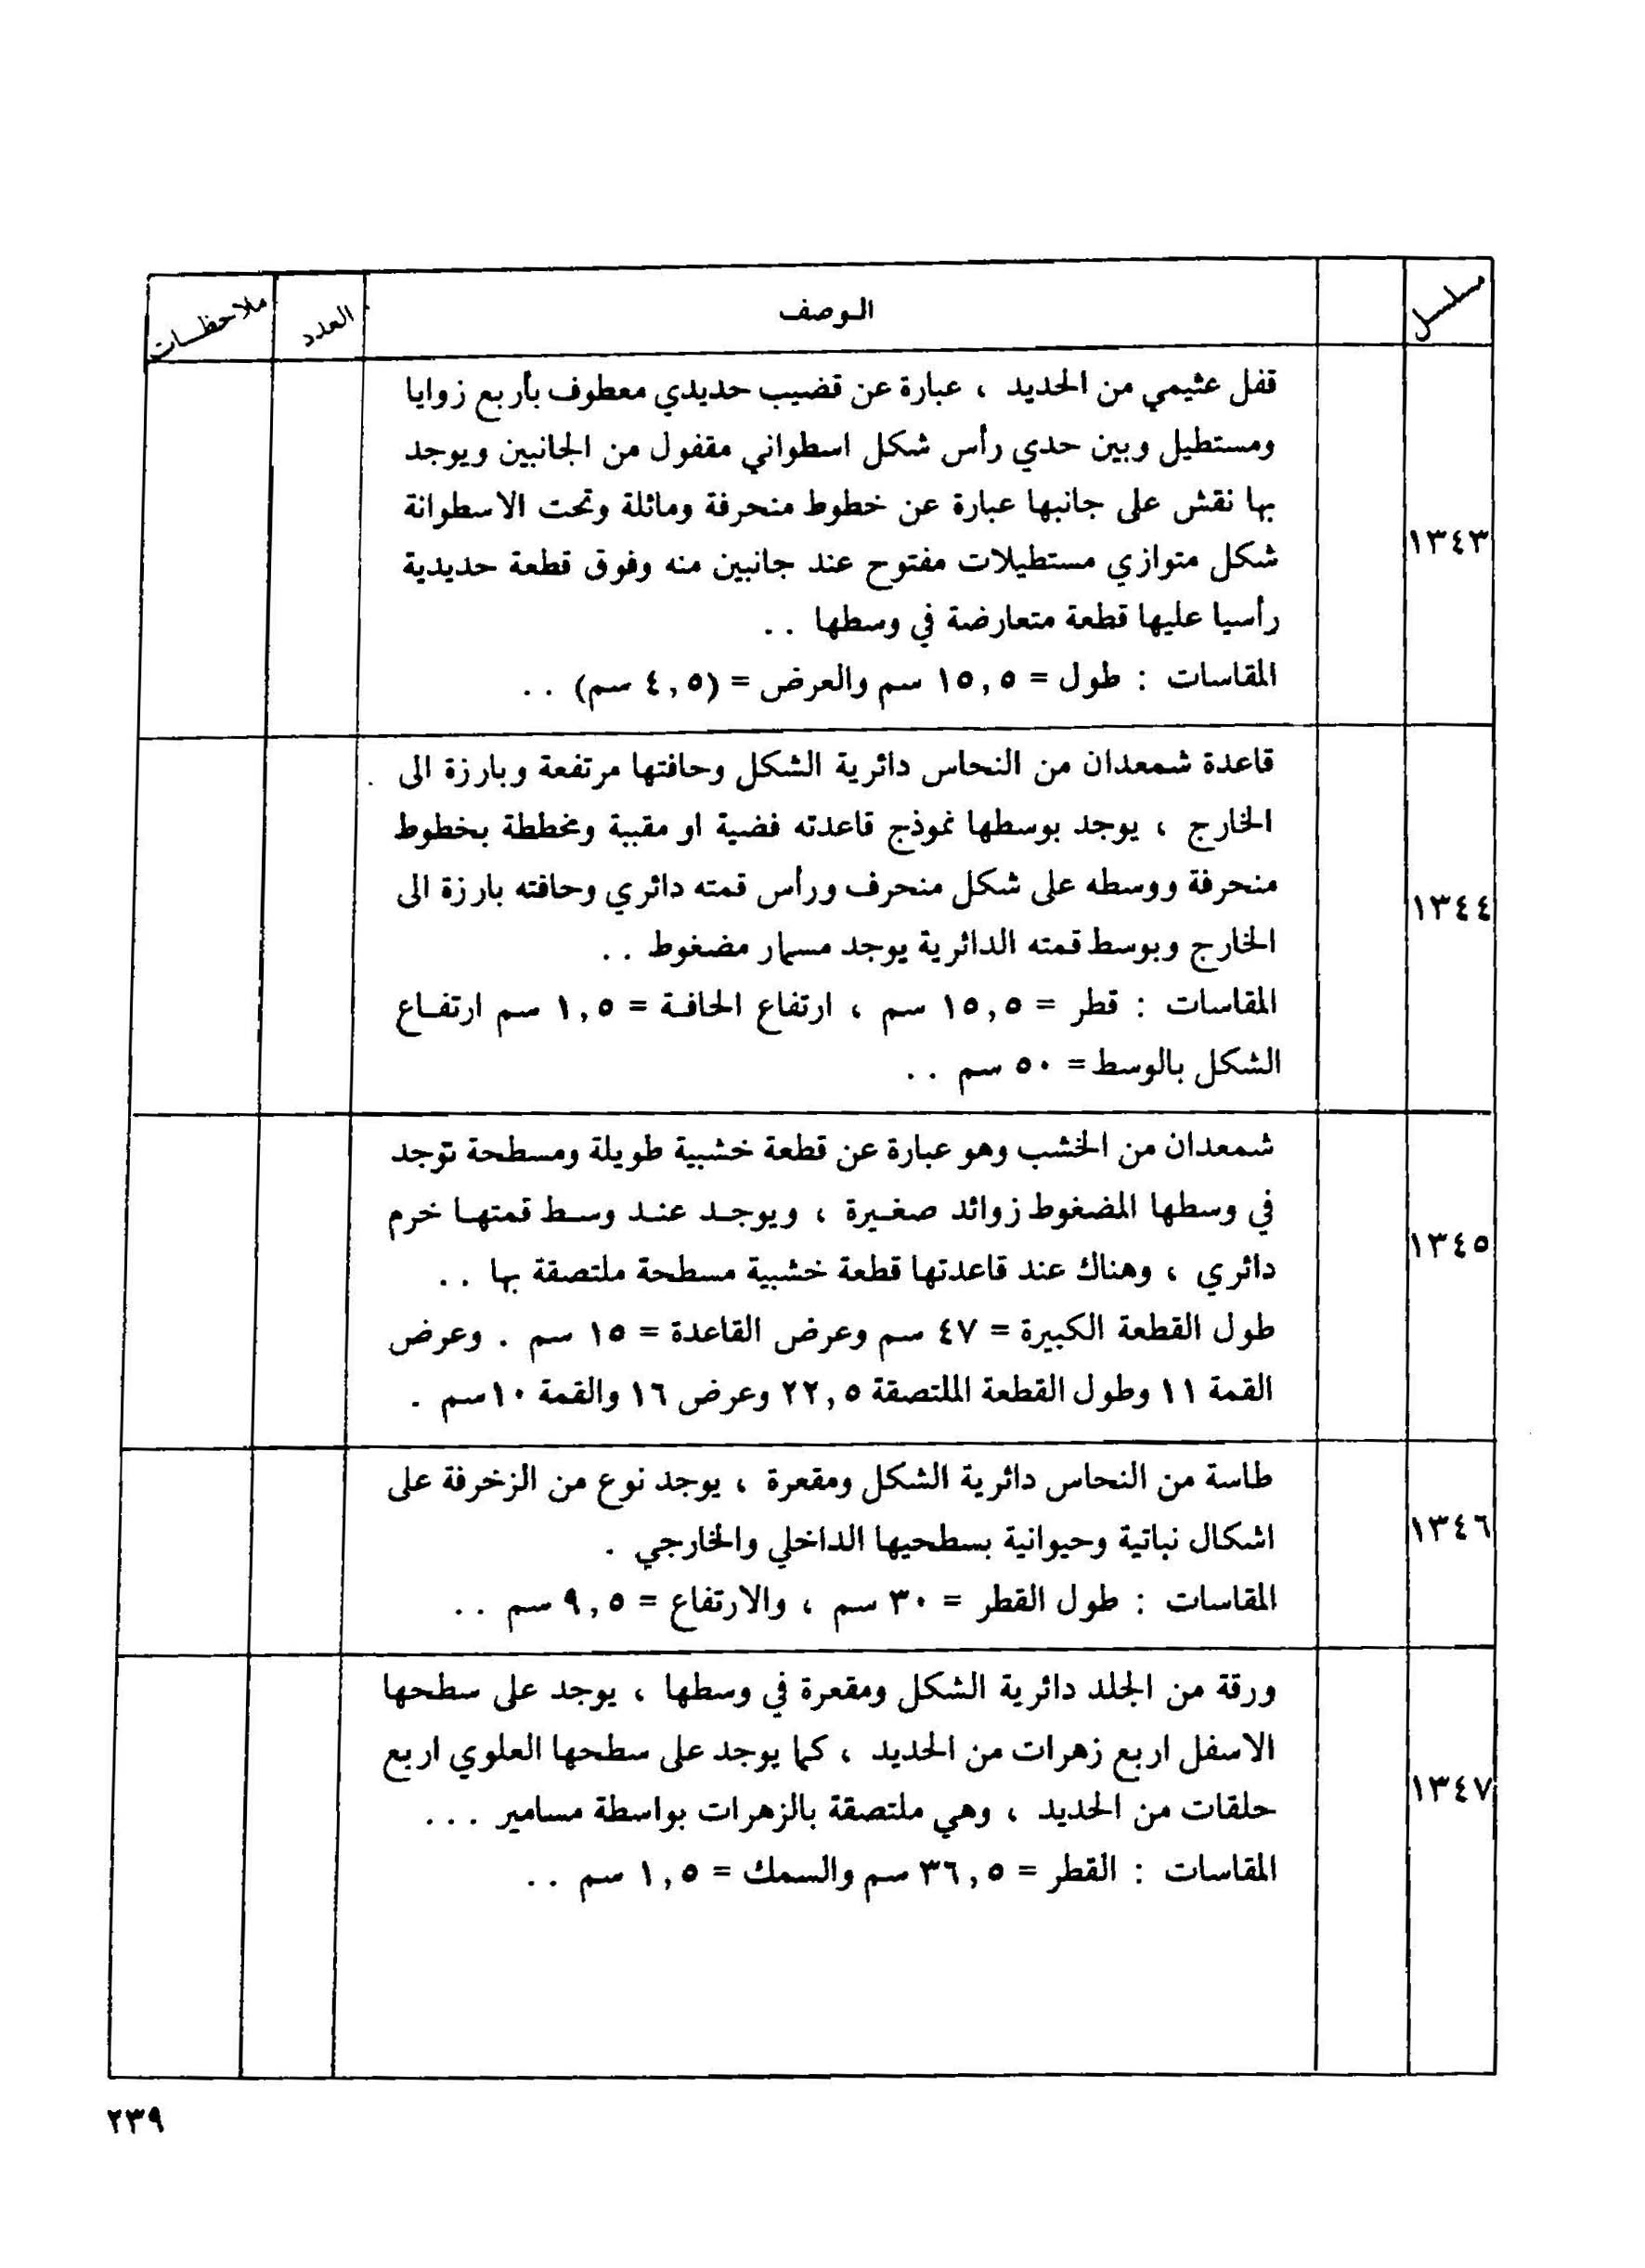 مسلسل الوصف العدد ملاحظات
قفل عثيمي من الحديد ، عبارة عن قضيب حديدي معطوف بأربع زوايا
ومستطيل وبين حدي رأس شكل اسطواني مقفول من الجانبين ويوجد
بها نقش على جانبها عبارة عن خطوط منحرفة ومائلة وتحت الاسطوانة
١٣٤٣
شكل متوازي مستطيلات مفتوح عند جانبين منه وفوق قطعة حديدية
رأسيا عليها قطعة متعارضة في وسطها . .
المقاسات : طول = ١٥,٥ سم والعرض = (٤,٥ سم) . .
قاعدة شمعدان من النحاس دائرية الشكل وحافتها مرتفعة وبارزة الى
الخارج ، يوجد بوسطها نموذج قاعدته فضية او مقببة ومخططة بخطوط
منحرفة ووسطه على شكل منحرف ورأس قمته دائري وحافته بارزة الى
١٣٤٤
الخارج وبوسط قمته الدائرية يوجد مسمار مضغوط . .
المقاسات : قطر = ١٥,٥ سم ، ارتفاع الحافة = ١,٥ سم ارتفاع
الشكل بالوسط = ٥٠ سم . .
شمعدان من الخشب وهو عبارة عن قطعة خشبية طويلة ومسطحة توجد
في وسطها المضغوط زوائد صغيرة ، ويوجد عند وسط قمتها خرم
١٣٤٥
دائري ، وهناك عند قاعدتها قطعة خشبية مسطحة ملتصقة بها . .
طول القطعة الكبيرة = ٤٧ سم وعرض القاعدة = ١٥ سم . وعرض
القمة ١١ وطول القطعة الملتصقة ٢٢,٥ وعرض ١٦ والقمة ١٠سم .
طاسة من النحاس دائرية الشكل ومقعرة ، يوجد نوع من الزخرفة على
١٣٤٦
اشكال نباتية وحيوانية بسطحيها الداخلي والخارجي .
المقاسات : طول القطر = ٣٠ سم ، والارتفاع = ٩,٥ سم . .
ورقة من الجلد دائرية الشكل ومقعرة في وسطها ، يوجد على سطحها
الاسفل اربع زهرات من الحديد ، كما يوجد على سطحها العلوي اربع
١٣٤٧
حلقات من الحديد ، وهي ملتصقة بالزهرات بواسطة مسامير . . .
المقاسات : القطر = ٣٦,٥ سم والسمك = ١,٥ سم . .
٢٣٩